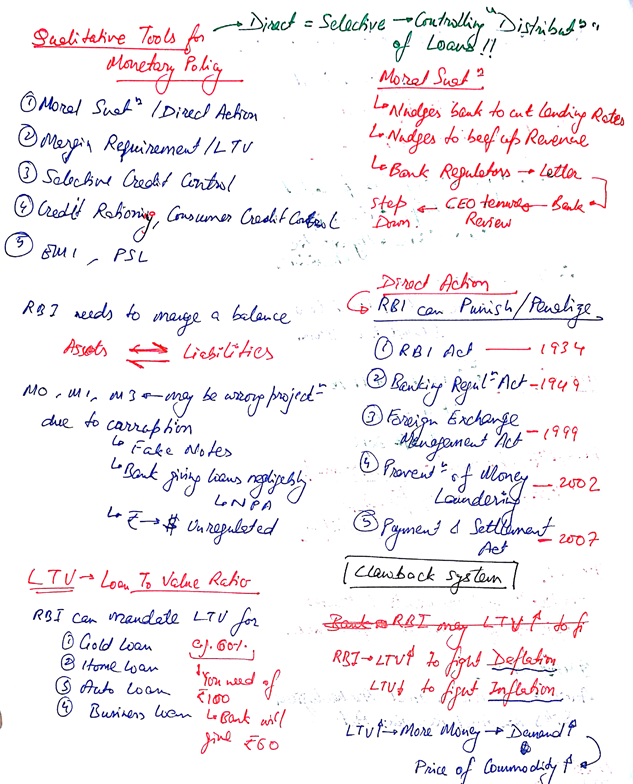 Qualitative Tools for
Monetary Policy
→ Direct = Selective → Controlling "Distributⁿ"
of Loans!!
① Moral Suatⁿ / Direct Action
② Margin Requirement / LTV
③ Selective Credit Control
④ Credit Rationing, Consumer Credit Control
⑤ EMI, PSL
Moral Suatⁿ
↳ Nudges bank to cut lending Rates
↳ Nudges to beef up Revenue
↳ Bank Regulators → Letter
Step ← CEO tenure ← Bank
Down. Review
RBI needs to manage a balance
Assets ⇌ Liabilities
M0, M1, M3 ← may be wrong projectⁿ
due to carraption
↳ Fake Notes
↳ Bank giving loans negligebly.
↳ NPA
↳ ₹ → $ Unregulated
Direct Action
↳ RBI can Punish/Penalize
① RBI Act — 1934
② Banking Regulⁿ Act - 1949
③ Foreign Exchange
Management Act - 1999
④ Preventⁿ of Money
Laundering — 2002
⑤ Payment & Settlement
Act - 2007
Clawback System
LTV → Loan To Value Ratio
RBI can mandate LTV for
① Gold loan eg. 60%.
② Home loan
③ Auto Loan
④ Business loan
↓ You need of
₹100
↳ Bank will
give ₹60
Bank RBI may LTV↑ to fi
RBI → LTV↑ to fight Deflation
LTV↓ to fight Inflation
LTV↑ → More Money → Demand↑
Price of Commodity↑